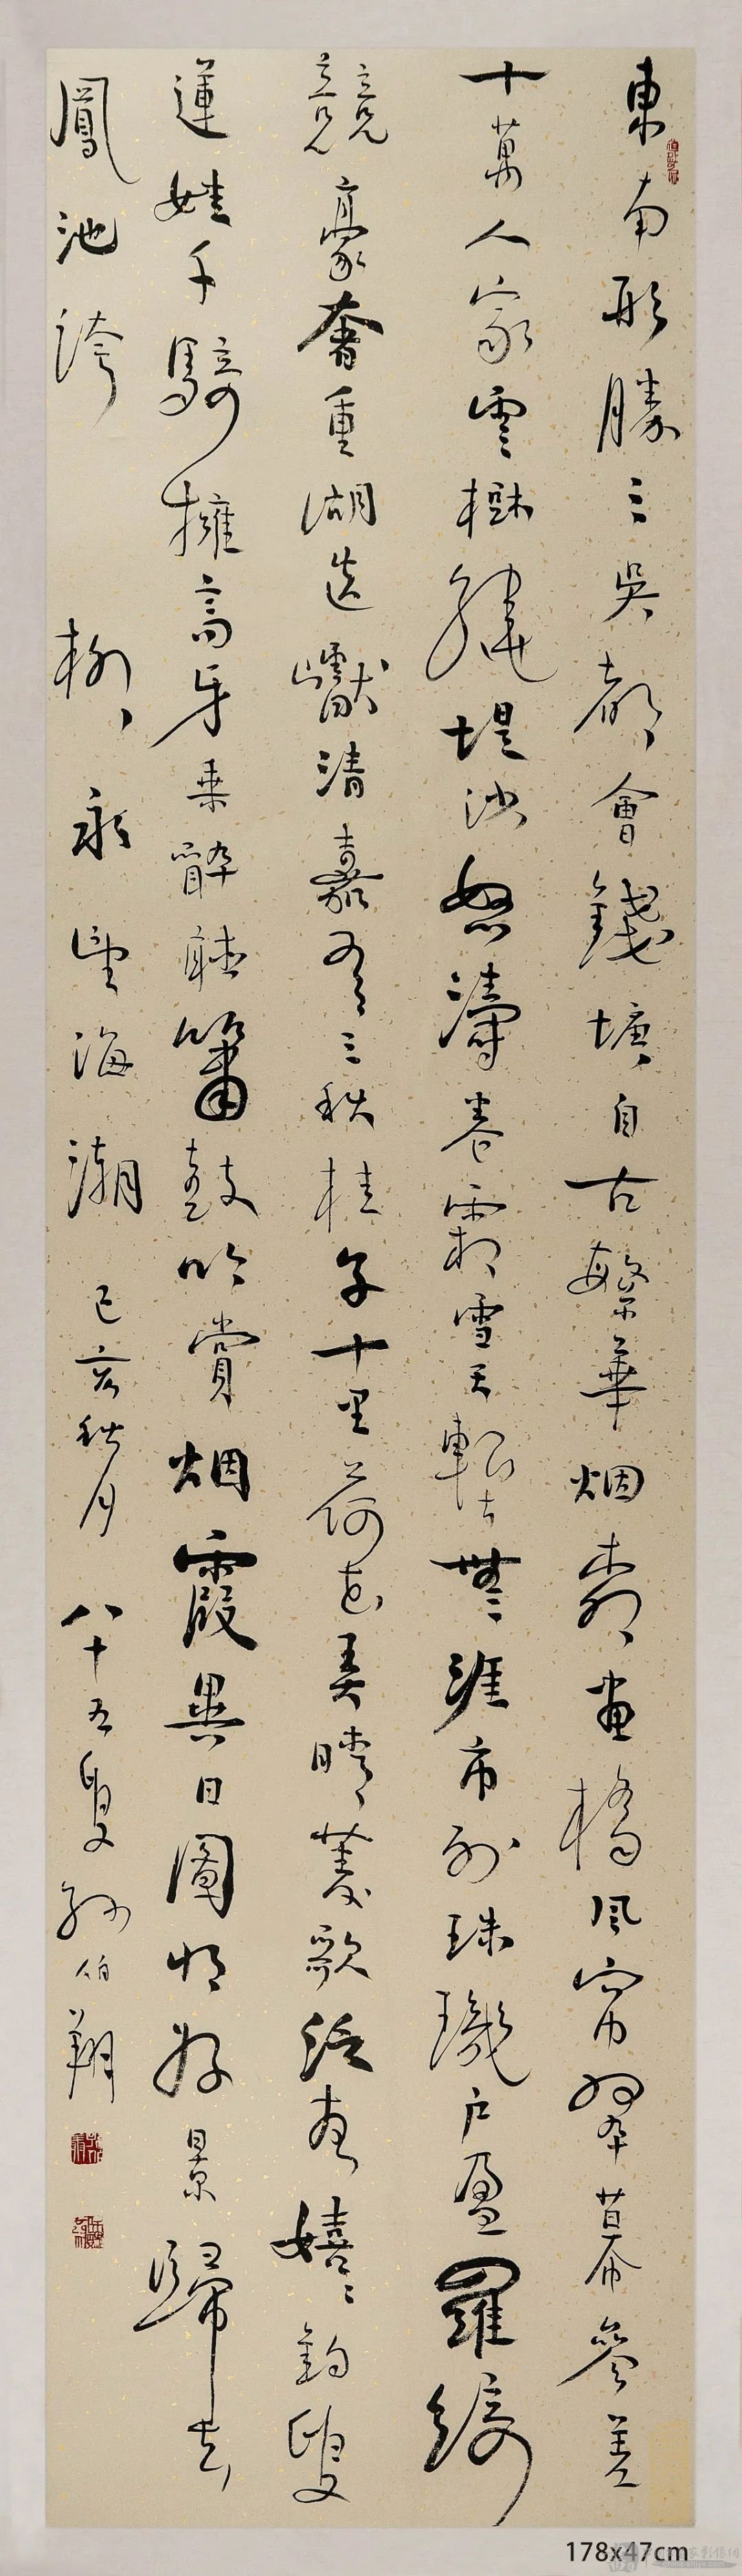 東南形勝三吳都會錢塘自古繁華烟柳画橋風帘翠幕參差
十萬人家雲樹繞堤沙怒濤卷霜雪天塹無涯市列珠璣户盈羅綺
競豪奢重湖迭巘清嘉有三秋桂子十里荷花弄晴菱歌泛夜嬉〻釣叟
蓮娃千騎擁高牙乘醉聽簫鼓吟賞烟霞異日圖將好景歸去
鳳池誇 柳永望海潮 己亥秋月 八十五叟孫伯翔
178x47cm